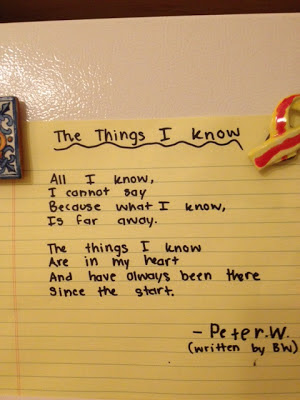 The Things I know
All I know,
I cannot say
Because what I know,
Is far away.
The things I know
Are in my heart
And have always been there
since the start.
- Peter.W.
(written by BW)